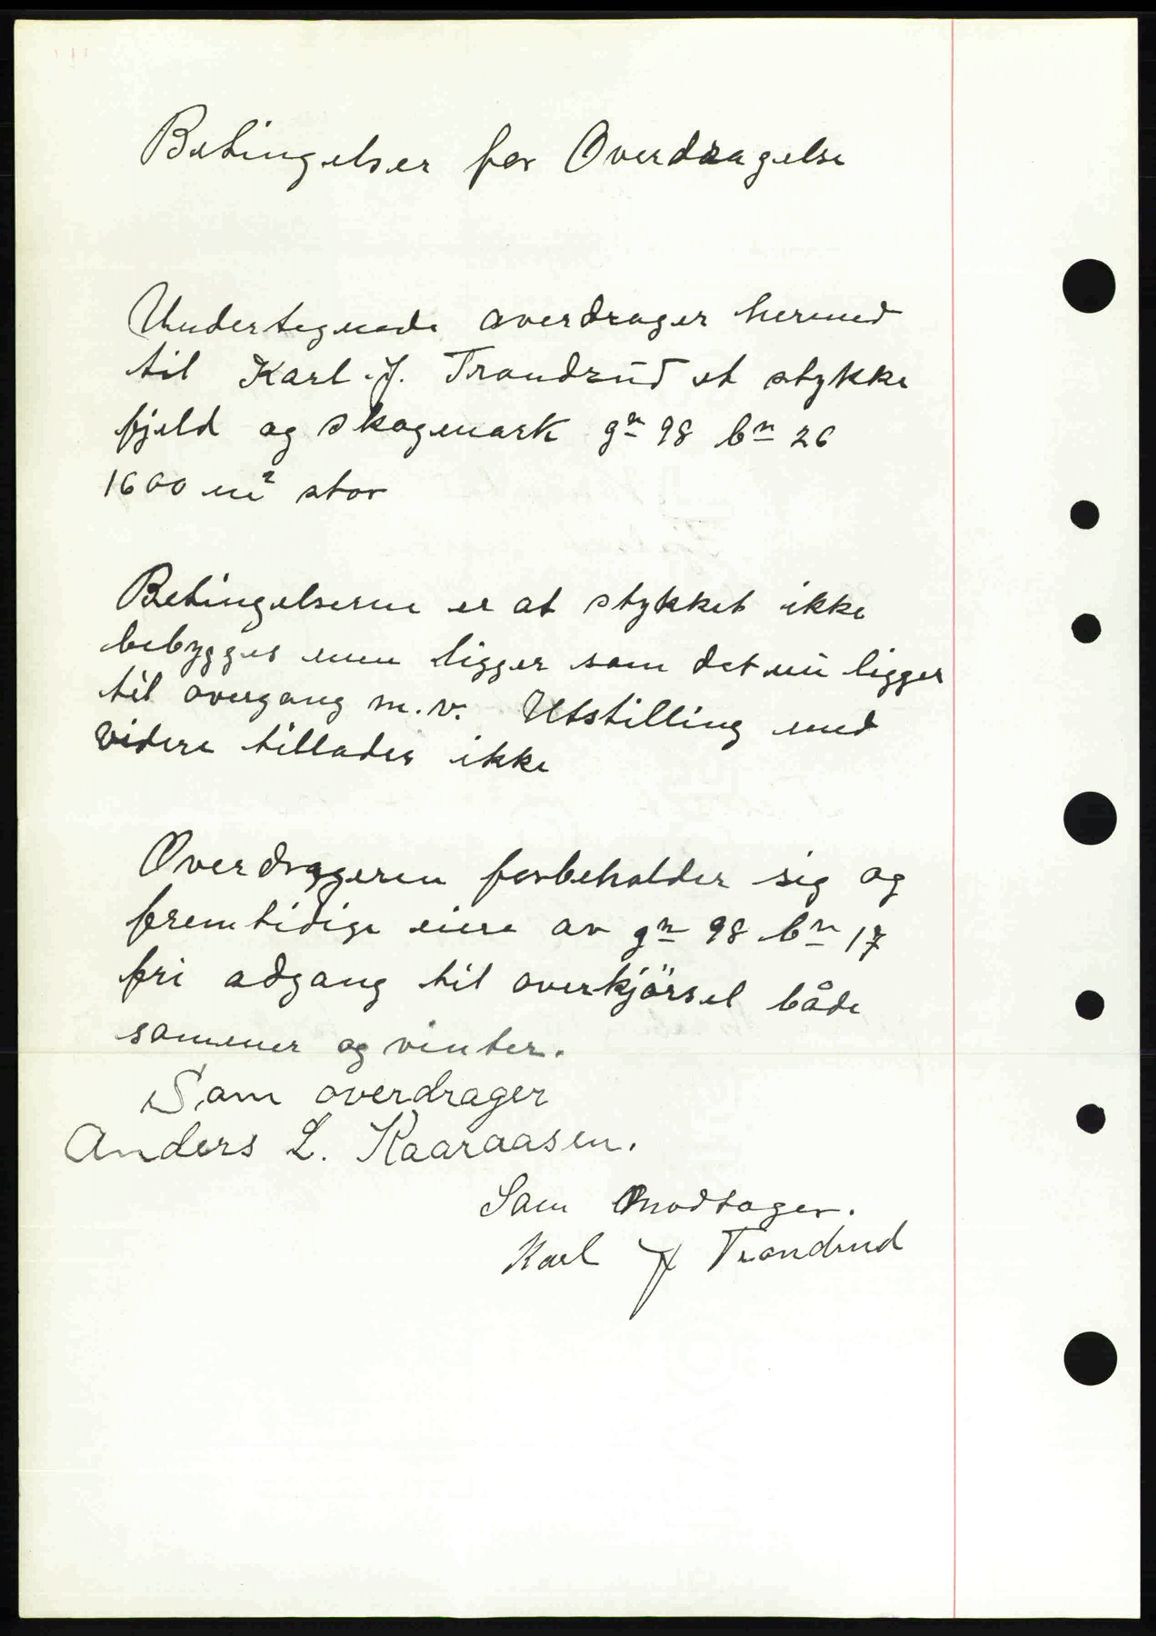 Betingelser for Overdragelse
Undertegnede overdrager hermed
til Karl. J. Trondrud et stykke
fjeld og skogmark gn 98 bn 26
1600 m² stor
Betingelserne er at stykket ikke
bebygges men ligger som det nu ligger
til overgang m.v. Utstilling med
videre tillades ikke
Overdrageren forbeholder sig og
fremtidige eiere av gn 98 bn 17
fri adgang til overkjörsel både
sommer og vinter.
Som overdrager
Anders L. Kaaraasen.
Som Modtager.
Karl J Trondrud